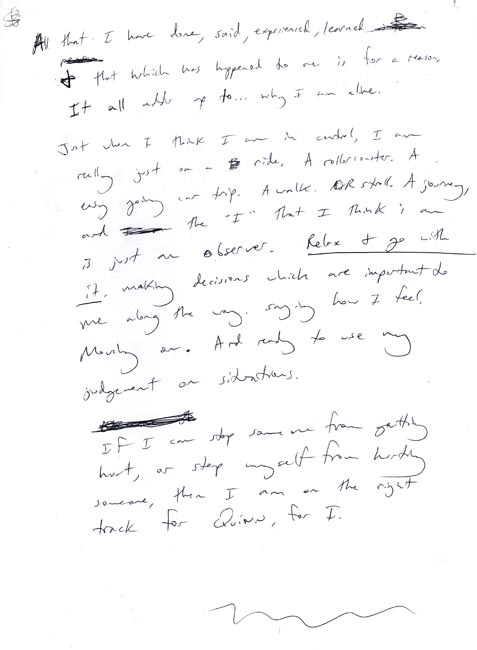 All that I have done, said, experienced, learned
& that which has happened to me is for a reason.
It all adds up to... why I am alive.
Just when I think I am in control, I am
really just on a ride. A rollercoaster. A
easy going car trip. A walk. OR stroll. A journey,
and the "I" that I think i am
is just an observer. Relax & go with
it. making decisions which are important to
me along the way. saying how I feel.
Moving on. And ready to use my
judgement on situations.
If I can stop someone from getting
hurt, or stop myself from hurting
someone, then I am on the right
track for Quinn, for I.